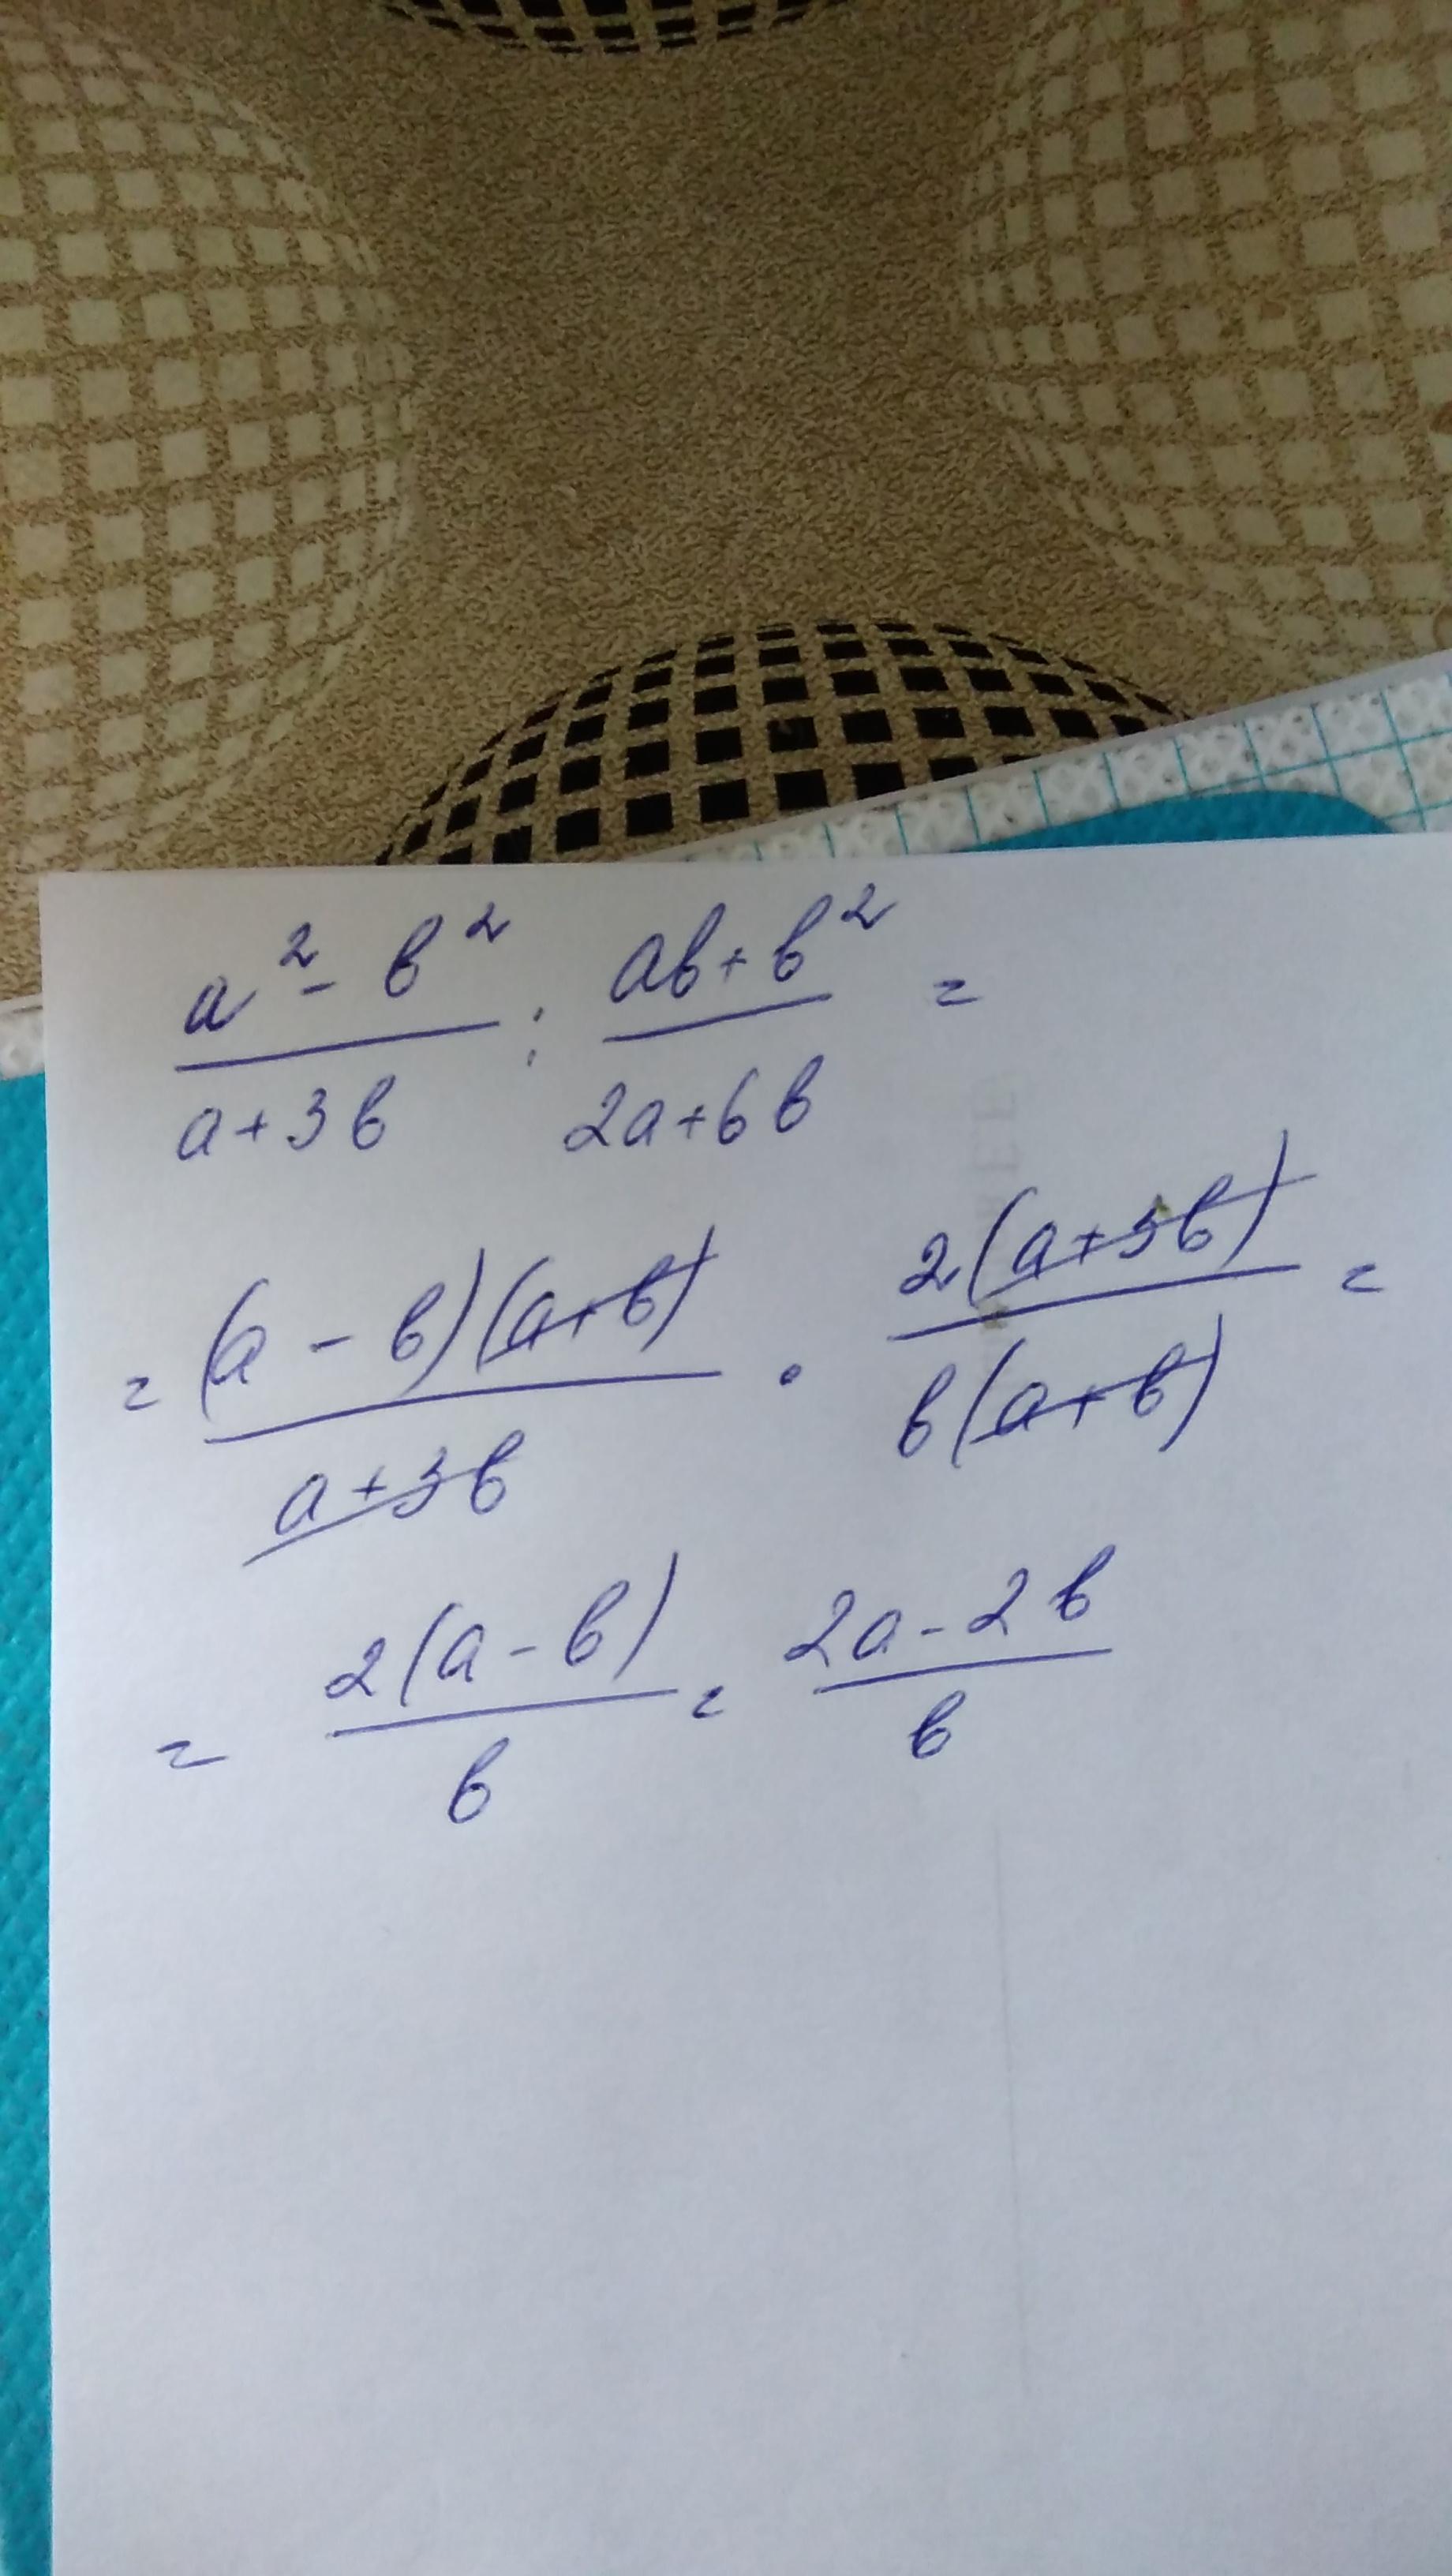 a² - b² / a + 3b : ab + b² / 2a + 6b =
= (a - b)(a + b) / a + 3b · 2(a + 3b) / b(a + b) =
= 2(a - b) / b = 2a - 2b / b